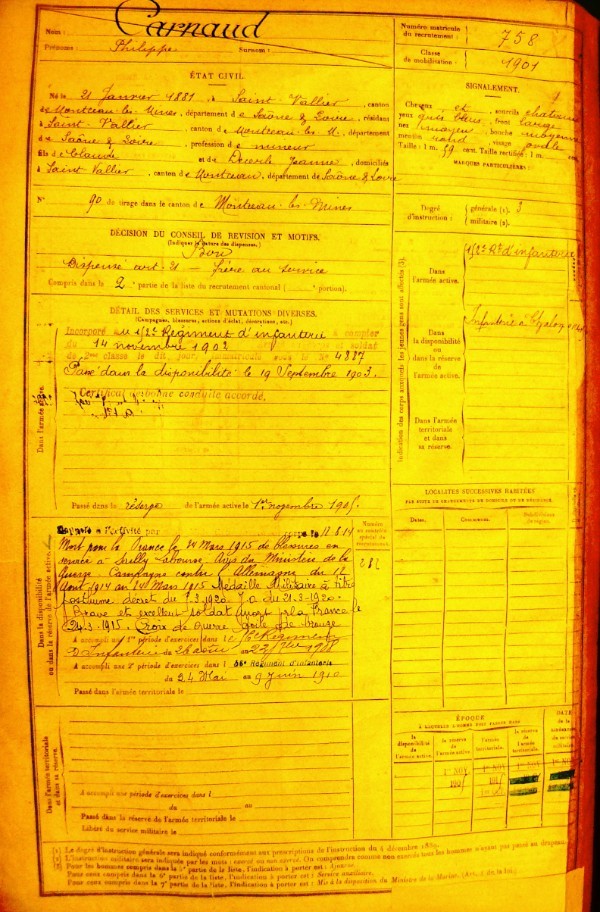 Nom : Carnaud
Prénoms : Philippe Surnom :
Numéro matricule du recrutement : 758
Classe de mobilisation : 1901
ÉTAT CIVIL.
Né le 21 Janvier 1881 à Saint Vallier, canton
de Montceau les Mines, département de Saône & Loire, résidant
à Saint Vallier, canton de Montceau les M., département
de Saône & Loire, profession de mineur
fils de Claude et de Jeanne, domiciliés
à Saint Vallier, canton de Montceau, département de Saône & Loire
N° 90 de tirage dans le canton de Montceau les Mines
SIGNALEMENT.
Cheveux et sourcils chatains
yeux gris bleus, front large
nez moyen, bouche moyenne
menton rond, visage ovale
Taille : 1 m. 59 cent. Taille rectifiée : 1 m. cent.
MARQUES PARTICULIÈRES :
Degré d'instruction : générale (1). 3
militaire (2).
DÉCISION DU CONSEIL DE REVISION ET MOTIFS.
(Indiquer la nature des dispenses.)
Bon
Dispensé art. 21 — frère au service
Compris dans la 2e partie de la liste du recrutement cantonal ( portion).
DÉTAIL DES SERVICES ET MUTATIONS DIVERSES.
(Campagnes, blessures, actions d'éclat, décorations, etc.)
Incorporé au Régiment d'infanterie à compter
du 14 novembre 1902 et soldat
de 2me classe le dit jour, immatriculé sous le N° 4887
Passé dans la disponibilité le 19 Septembre 1903.
Certificat de bonne conduite accordé.
Dans l'armée active.
Passé dans la réserve de l'armée active le 1er novembre 1905.
Indication des corps auxquels les jeunes gens sont affectés
Dans l'armée active.
d'infanterie
Dans la disponibilité ou dans la réserve de l'armée active.
Infanterie à Chalon
Dans l'armée territoriale et dans sa réserve.
LOCALITÉS SUCCESSIVES HABITÉES
PAR SUITE DE CHANGEMENTS DE DOMICILE OU DE RÉSIDENCE.
Dates. Communes. Subdivisions de région.
Dans la disponibilité ou dans la réserve de l'armée active.
Rappelé à l'activité par
Mort pour la France le 24 Mars 1915 de blessures en
service à Sailly Labourse. Avis du Ministère de la
Guerre. Campagne contre l'Allemagne du 12
Août 1914 au 24 Mars 1915 Médaille Militaire à titre
posthume décret du 1.3.1920 J.O. du 21.3.1920.
Brave et excellent soldat mort p. la France le
24.3.1915. Croix de Guerre Étoile de bronze
A accompli une 1re période d'exercices dans le Régiment
d'Infanterie du 26 août au 1908
A accompli une 2e période d'exercices dans le 56e Régiment d'infanterie
du 24 Mai au 9 Juin 1910
Passé dans l'armée territoriale le
Dans l'armée territoriale et dans sa réserve.
A accompli une période d'exercices dans l
du au
Passé dans la réserve de l'armée territoriale le
Libéré du service militaire le
ÉPOQUE
À LAQUELLE L'HOMME DOIT PASSER DANS
la disponibilité de l'armée active.
la réserve de l'armée active.
l'armée territoriale.
la réserve de l'armée territoriale.
DATE de la libération du service militaire.
1er NOV 1er NOV
(1) Le degré d'instruction générale sera indiqué conformément aux prescriptions de l'instruction du 4 décembre 1889.
(2) L'instruction militaire sera indiquée par les mots : exercé ou non exercé.
Pour les hommes compris dans la 5e partie de la liste, l'indication à porter est : Ajourné.
Pour ceux compris dans la 6e partie de la liste, l'indication à porter est : Service auxiliaire.
Pour ceux compris dans la 7e partie de la liste, l'indication à porter est : Mis à la disposition du Ministre de la Marine.